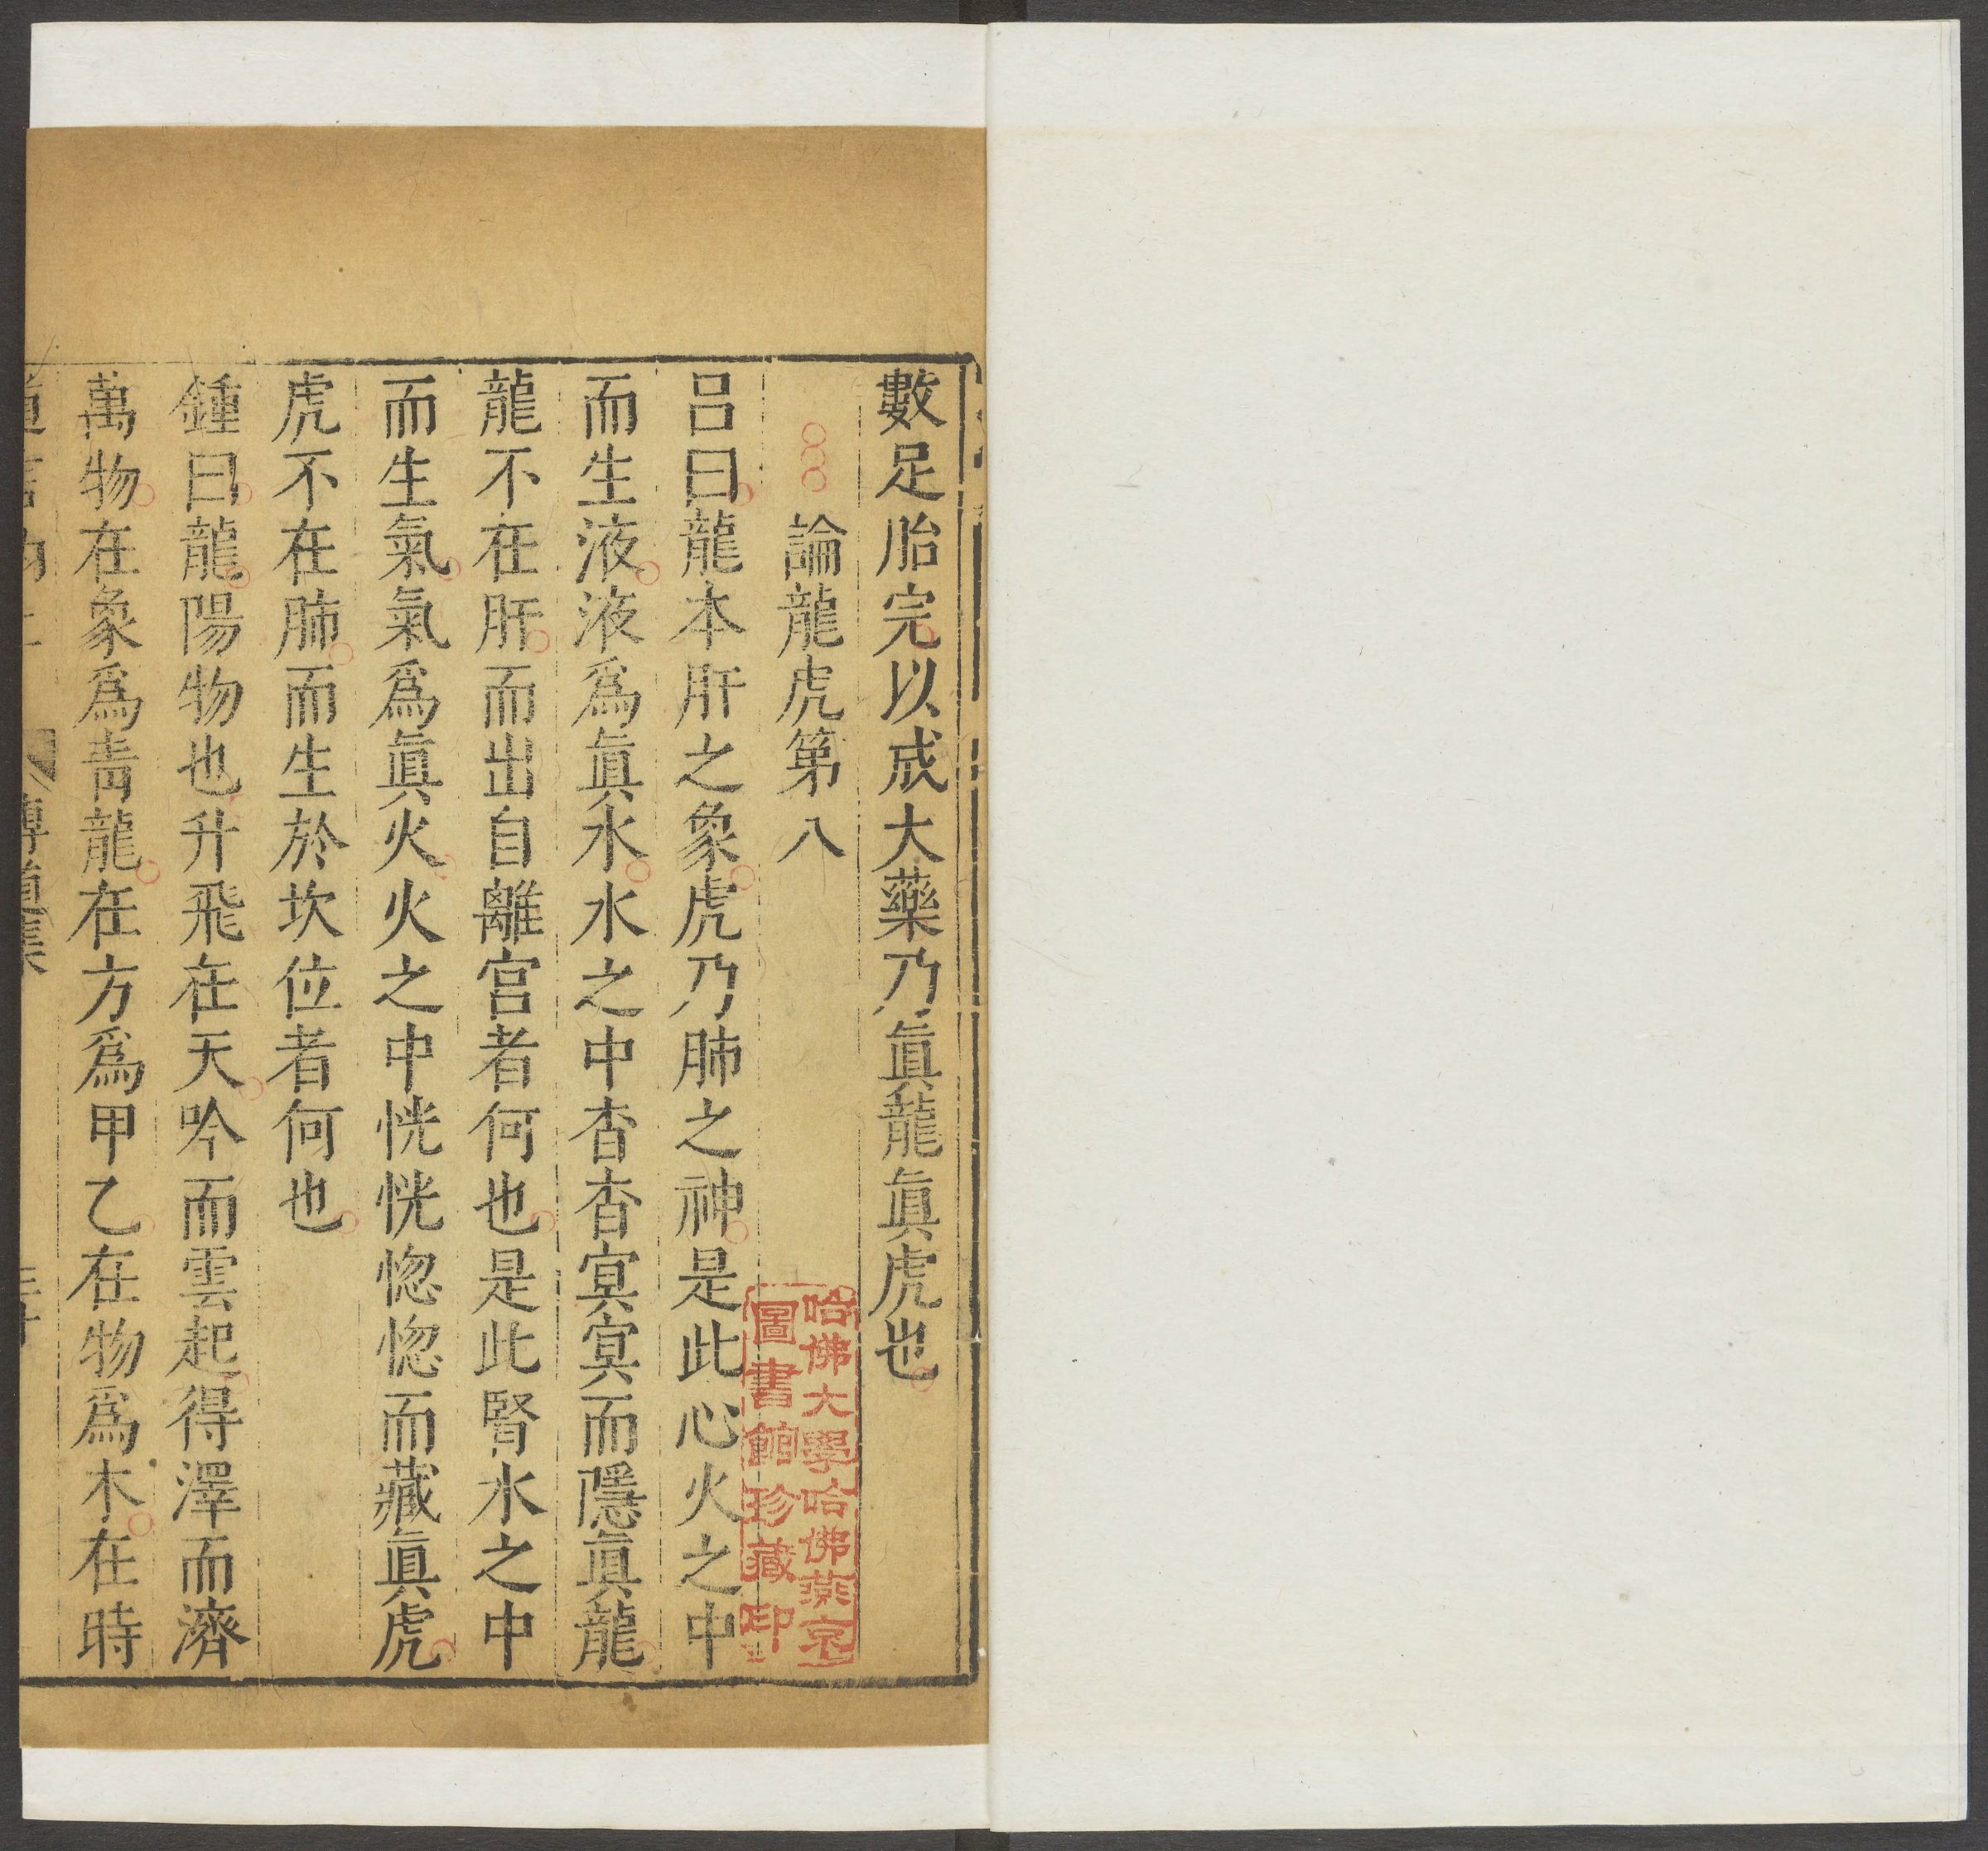 數足胎完以成大藥乃眞龍眞虎也
論龍虎第八
呂曰龍本肝之象虎乃肺之神是此心火之中
而生液液爲眞水水之中杳杳冥冥而隱眞龍
龍不在肝而出自離宮者何也是此腎水之中
而生氣氣爲眞火火之中恍恍惚惚而藏眞虎
虎不在肺而生於坎位者何也
鍾曰龍陽物也升飛在天吟而雲起得澤而濟
萬物在象爲靑龍在方爲甲乙在物爲木在時
傳道集
哈佛大學哈佛燕京
圖書館珍藏印